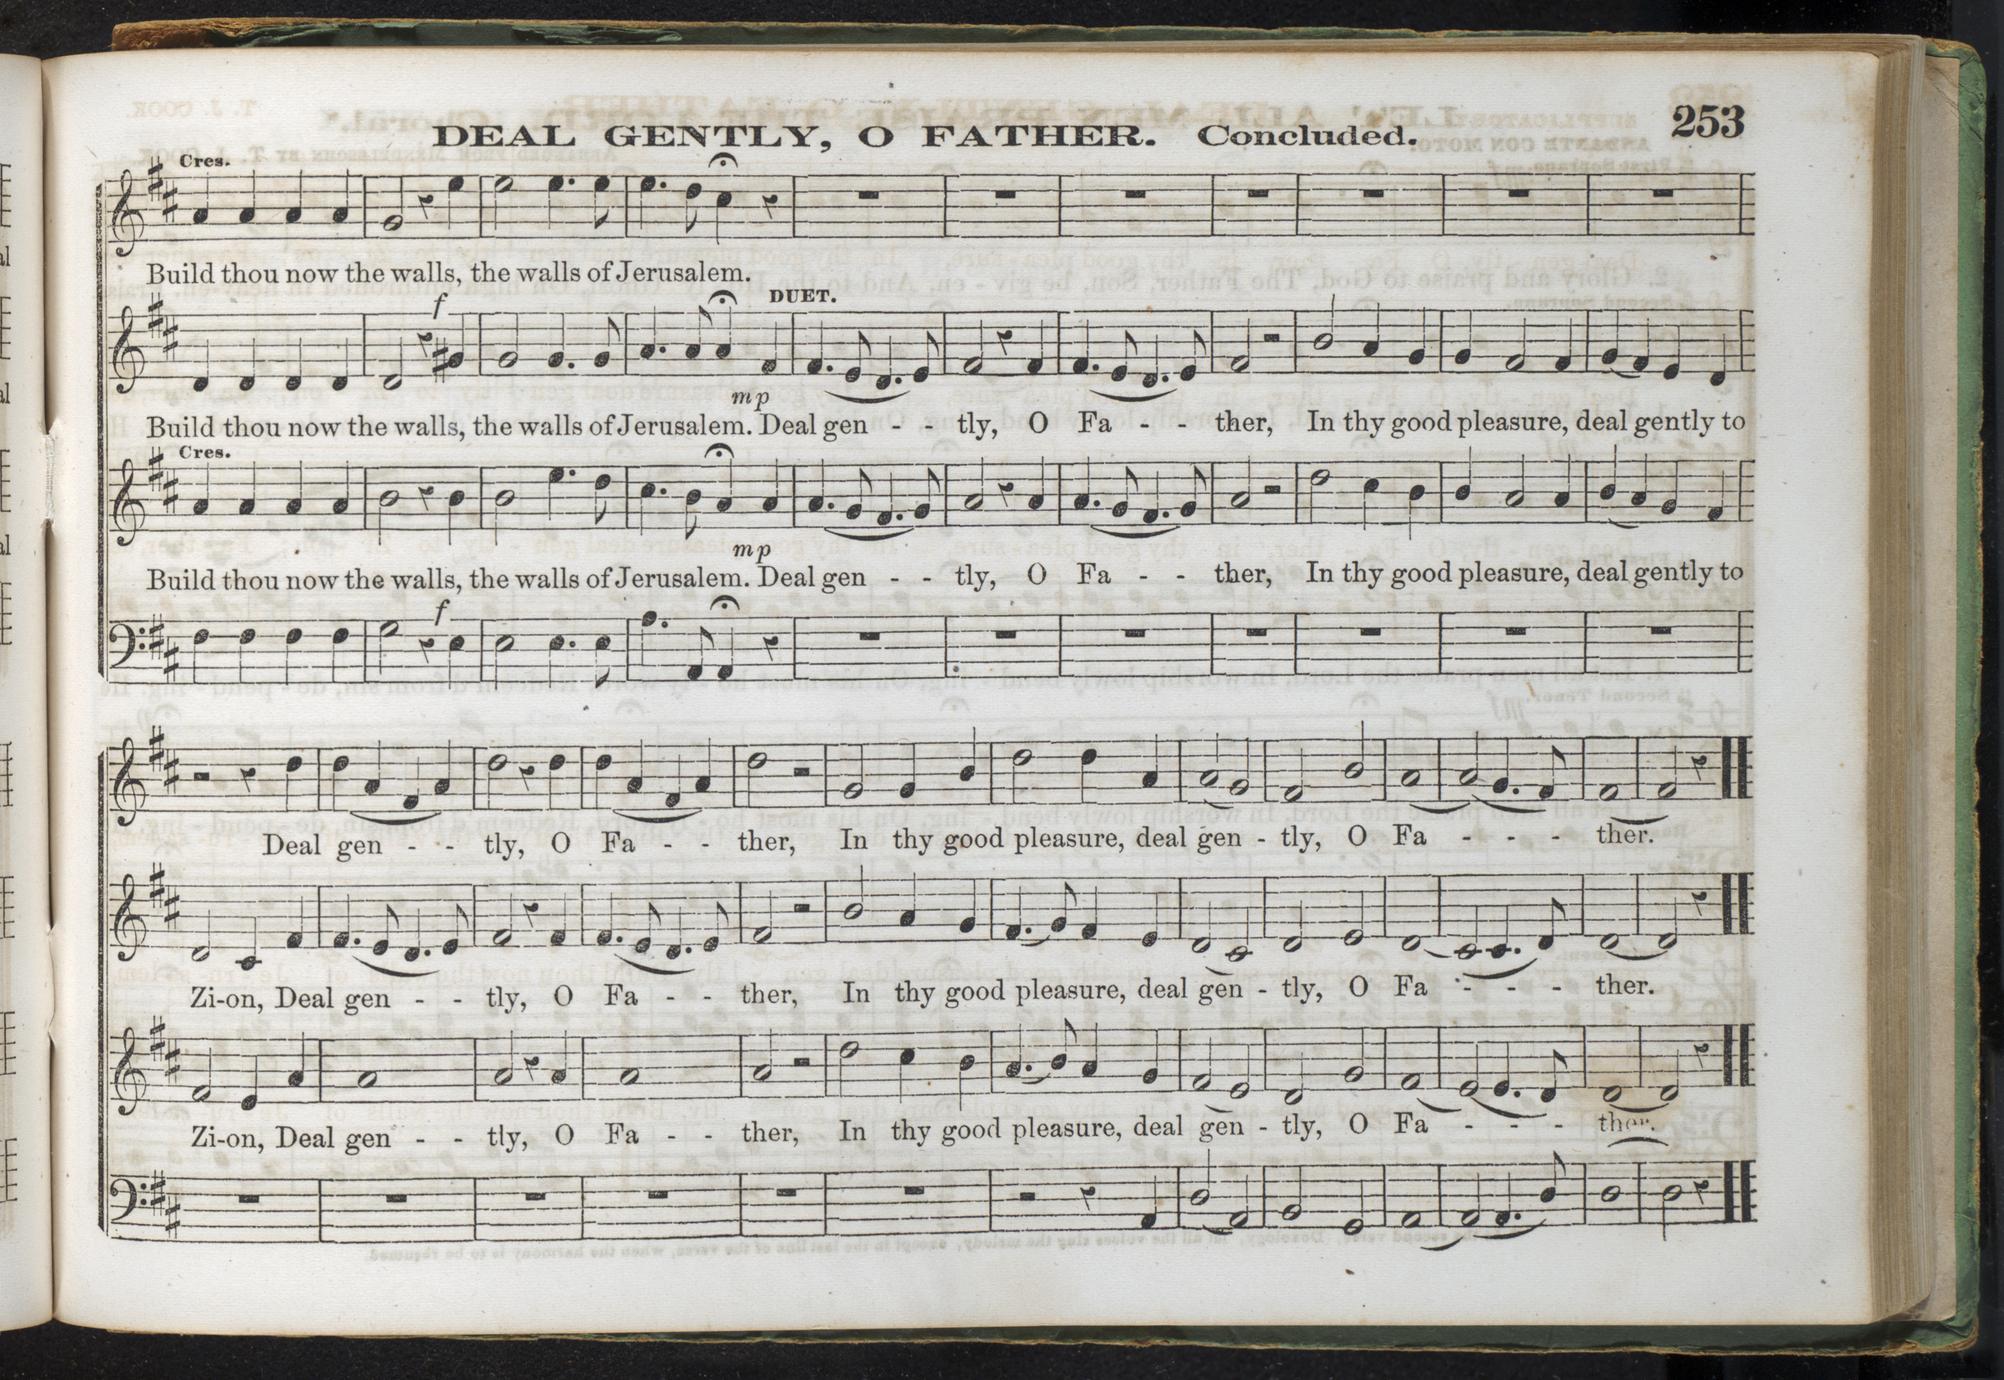 253
DEAL GENTLY, O FATHER. Concluded.
Cres.
Build thou now the walls, the walls of Jerusalem.
f
DUET.
mp
Build thou now the walls, the walls of Jerusalem. Deal gen - - tly, O Fa - - ther, In thy good pleasure, deal gently to
Cres.
mp
Build thou now the walls, the walls of Jerusalem. Deal gen - - tly, O Fa - - ther, In thy good pleasure, deal gently to
f
Deal gen - - tly, O Fa - - ther, In thy good pleasure, deal gen - tly, O Fa - - - ther.
Zi-on, Deal gen - - tly, O Fa - - ther, In thy good pleasure, deal gen - tly, O Fa - - - ther.
Zi-on, Deal gen - - tly, O Fa - - ther, In thy good pleasure, deal gen - tly, O Fa - - - ther.